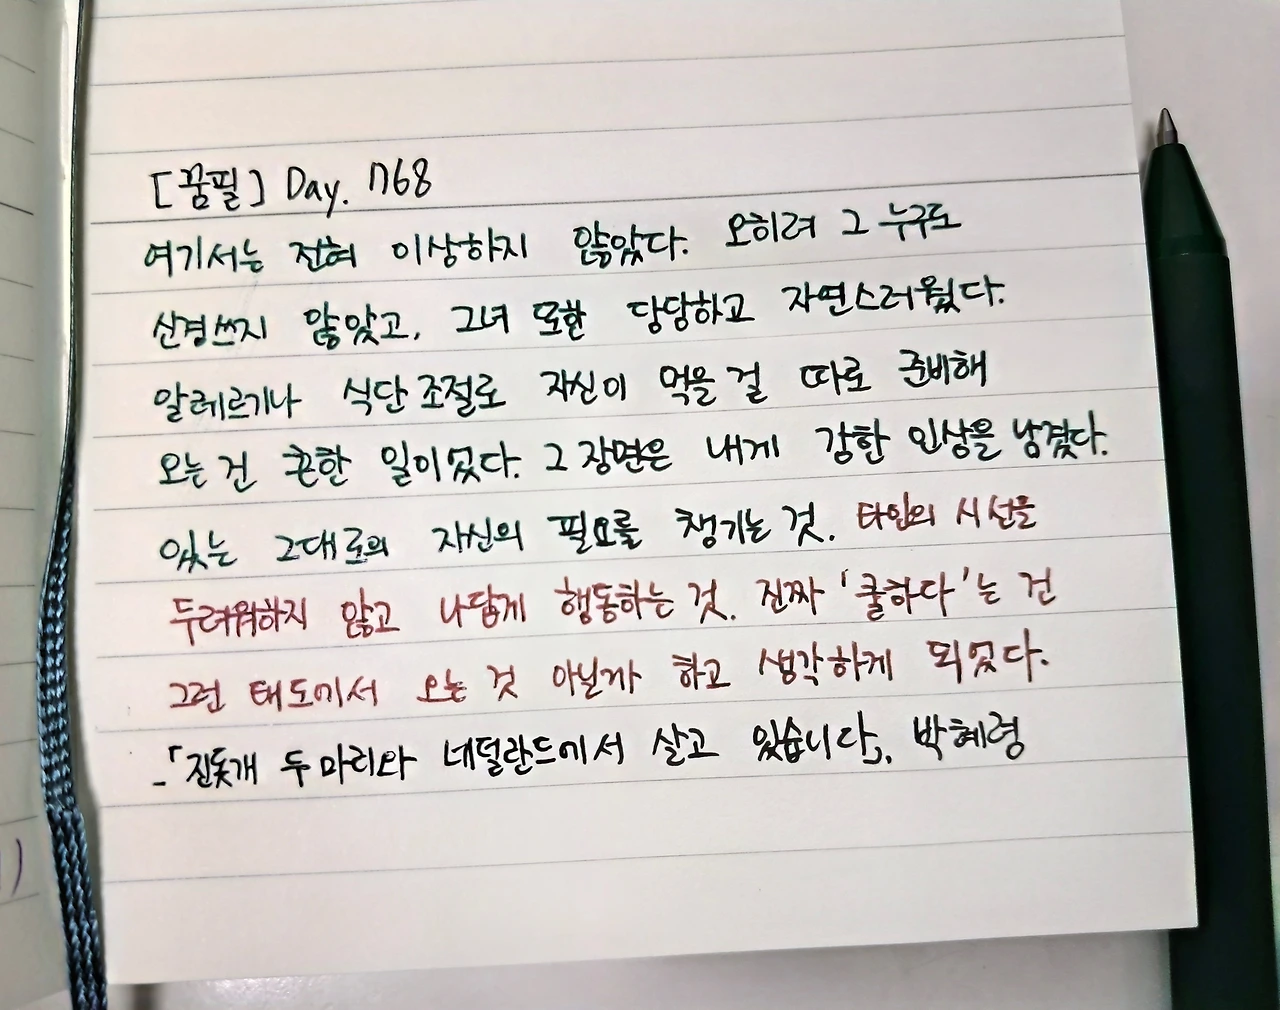 [꿈필] Day. 1768
여기서는 전혀 이상하지 않았다. 오히려 그 누구도
신경쓰지 않았고, 그녀 또한 당당하고 자연스러웠다.
알레르기나 식단 조절로 자신이 먹을 걸 따로 준비해
오는 건 흔한 일이었다. 그 장면은 내게 강한 인상을 남겼다.
있는 그대로의 자신의 필요를 챙기는 것. 타인의 시선을
두려워하지 않고 나답게 행동하는 것. 진짜 '쿨하다'는 건
그런 태도에서 오는 것 아닐까 하고 생각하게 되었다.
_「진돗개 두 마리와 네덜란드에서 살고 있습니다」, 박혜령
)